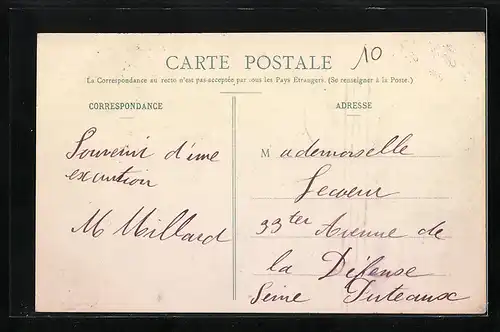 CARTE POSTALE
10
La Correspondance au recto n'est pas acceptée par tous les Pays Etrangers. (Se renseigner à la Poste.)
CORRESPONDANCE
Souvenir d'une
excurtion
M Millard
ADRESSE
Mademoiselle
Lecoeur
33ter Avenue de
la Défense
Seine Puteaux